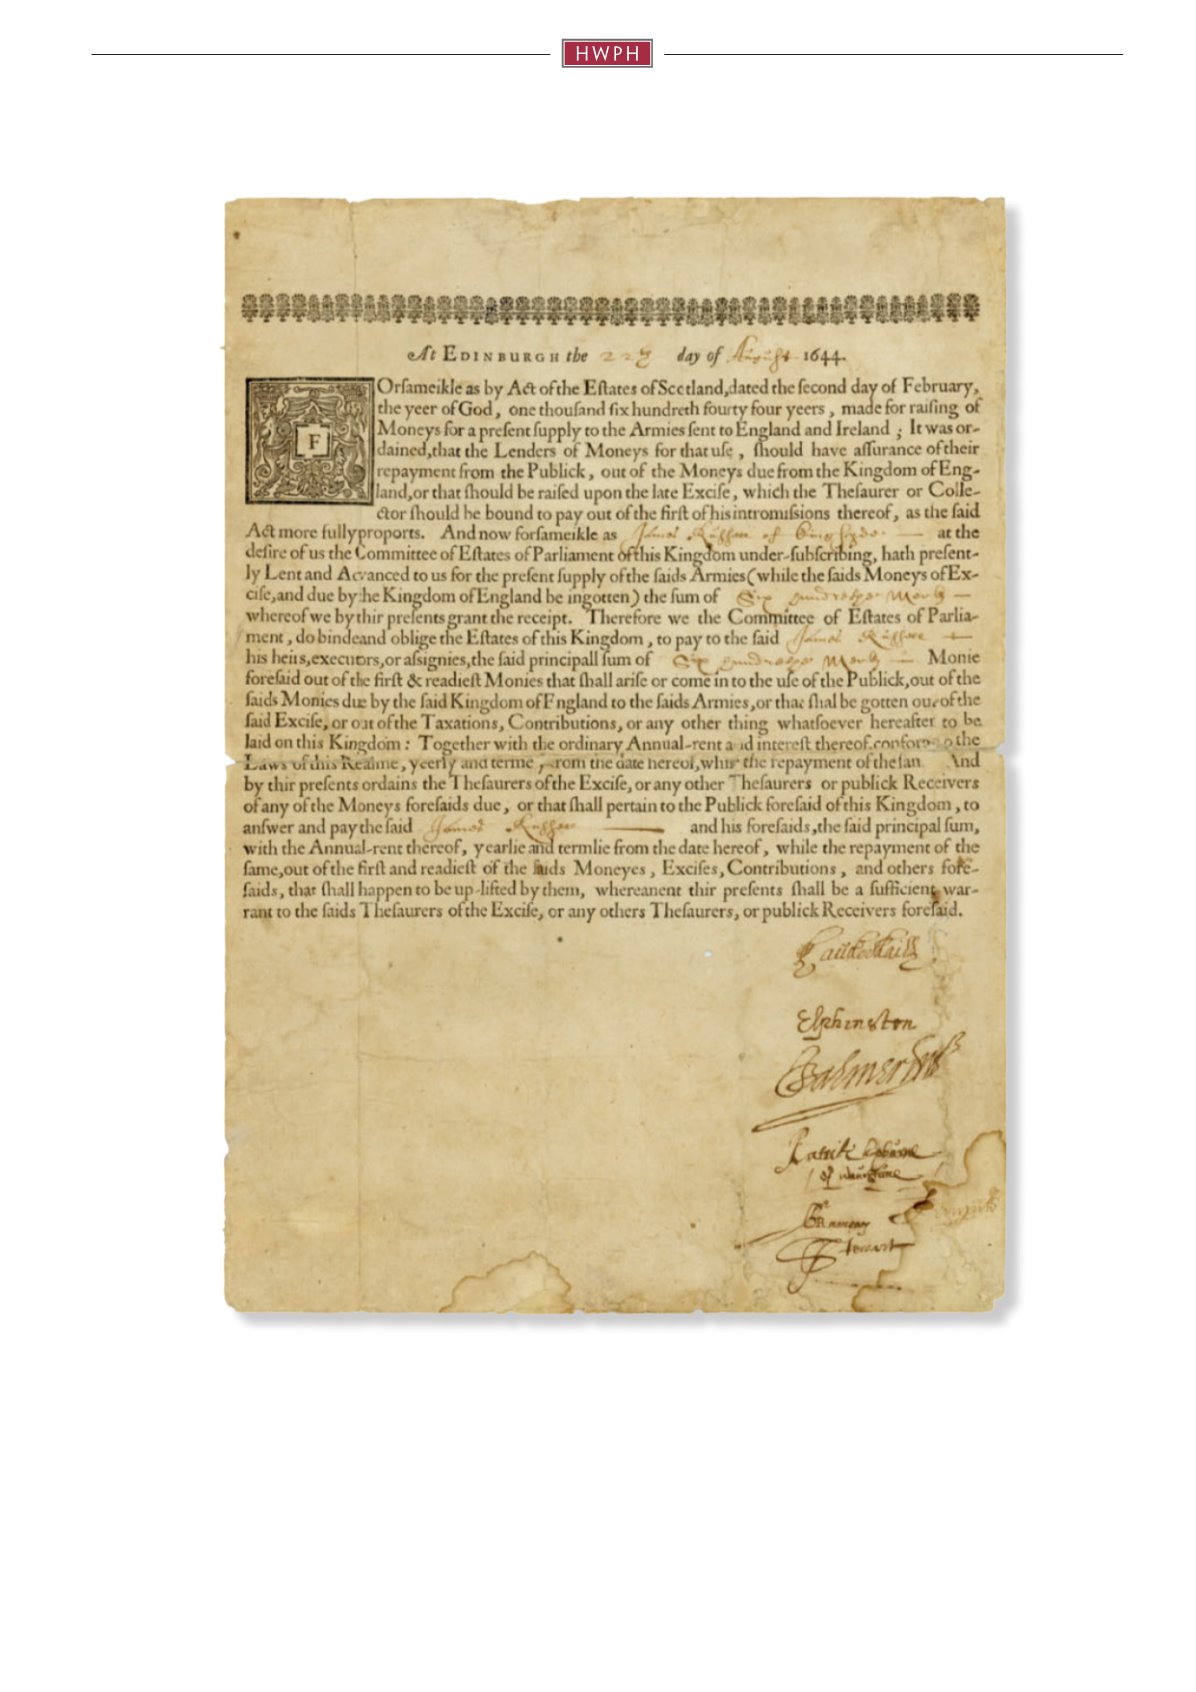 HWPH
At EDINBURGH the 22 day of August 1644.
FOrſameikle as by Act of the Eſtates of Scotland,dated the ſecond day of February,
the yeer of God, one thouſand ſix hundreth fourty four yeers, made for raiſing of
Moneys for a preſent ſupply to the Armies ſent to England and Ireland ; It was or-
dained,that the Lenders of Moneys for that uſe, ſhould have aſſurance of their
repayment from the Publick, out of the Moneys due from the Kingdom of Eng-
land,or that ſhould be raiſed upon the late Exciſe, which the Theſaurer or Colle-
ctor ſhould be bound to pay out of the firſt of his intromiſsions thereof, as the ſaid
Act more fully proports. And now forſameikle as James of at the
deſire of us the Committee of Eſtates of Parliament of this Kingdom under-ſubſcribing, hath preſent-
ly Lent and Advanced to us for the preſent ſupply of the ſaids Armies (while the ſaids Moneys of Ex-
ciſe,and due by the Kingdom of England be ingotten) the ſum of Six
whereof we by thir preſents grant the receipt. Therefore we the Committee of Eſtates of Parlia-
ment, do binde and oblige the Eſtates of this Kingdom, to pay to the ſaid James
his heirs,executors,or aſsignies,the ſaid principall ſum of Six Monie
foreſaid out of the firſt & readieſt Monies that ſhall ariſe or come in to the uſe of the Publick,out of the
ſaids Monies due by the ſaid Kingdom of England to the ſaids Armies,or that ſhal be gotten out of the
ſaid Exciſe, or out of the Taxations, Contributions, or any other thing whatſoever hereafter to be
laid on this Kingdom : Together with the ordinary Annual-rent and intereſt thereof,conform to the
Laws of this Realme, yeerly and terme , from the date hereof, the repayment of the And
by thir preſents ordains the Theſaurers of the Exciſe, or any other Theſaurers or publick Receivers
of any of the Moneys foreſaids due, or that ſhall pertain to the Publick foreſaid of this Kingdom, to
anſwer and pay the ſaid James and his foreſaids,the ſaid principal ſum,
with the Annual-rent thereof, yearlie and termlie from the date hereof, while the repayment of the
ſame,out of the firſt and readieſt of the ſaids Moneyes, Exciſes, Contributions, and others fore-
ſaids, that ſhall happen to be up-lifted by them, whereanent thir preſents ſhall be a ſufficient war-
rant to the ſaids Theſaurers of the Exciſe, or any others Theſaurers, or publick Receivers foreſaid.
Elphinston
Patrik
of